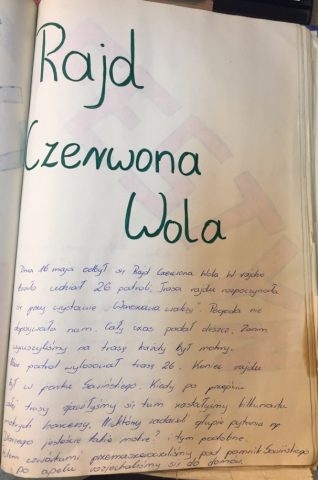 Rajd
Czerwona
Wola
Dnia 16 maja odbył się Rajd Czerwona Wola. W rajdzie
brało udział 26 patroli. Trasa rajdu rozpoczynała
się przy wystawie "Warszawa walczy". Pogoda nie
dopisywała nam. Cały czas padał deszcz. Zanim
wyruszyliśmy na trasę każdy był mokry.
patrol wylosował trasę 26. Koniec rajdu
był w parku Sowińskiego. Kiedy po przejściu
całej trasy zjawiłyśmy się tam zastałyśmy kilkunastu
mokrych harcerzy. Niektórzy zadawali głupie pytania np.
Dlaczego jesteście takie mokre? i tym podobne.
Potem czwórkami przemaszerowaliśmy pod pomnik Sowińskiego
po apelu rozjechaliśmy się do domów.